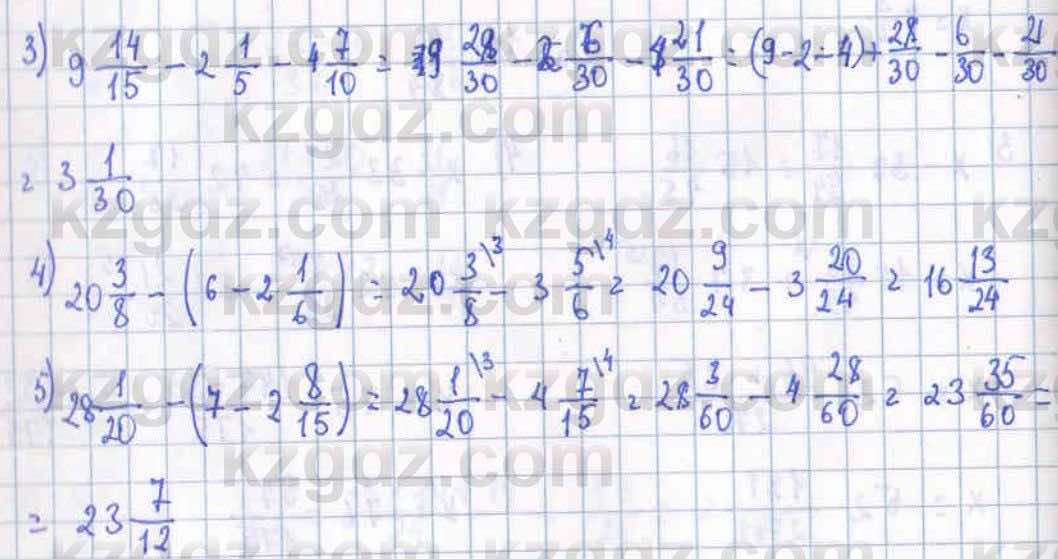 3) 9 14/15 - 2 1/5 - 4 7/10 = 9 28/30 - 2 6/30 - 4 21/30 = (9-2-4) + 28/30 - 6/30 - 21/30
= 3 1/30
4) 20 3/8 - (6 - 2 1/6) = 20 3/8 \3 - 3 5/6 \4 = 20 9/24 - 3 20/24 = 16 13/24
5) 28 1/20 - (7 - 2 8/15) = 28 1/20 \3 - 4 7/15 \4 = 28 3/60 - 4 28/60 = 23 35/60 =
= 23 7/12
kzgdz.com